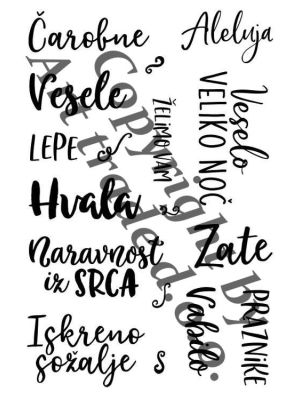 Čarobne
Aleluja
Vesele
ŽELIMO VAM
Veselo
VELIKO NOČ
LEPE
Hvala
Zate
Naravnost
iz SRCA
Vabilo
PRAZNIKE
Iskreno
sožalje
Copyright by
Art traded.co.